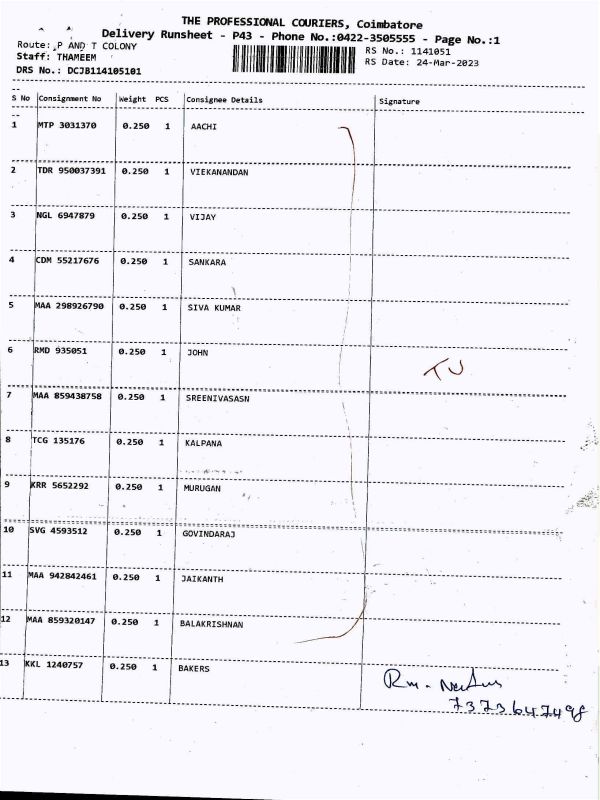 THE PROFESSIONAL COURIERS, Coimbatore
Delivery Runsheet - P43 - Phone No.:0422-3505555 - Page No.:1
Route: P AND T COLONY
RS No.: 1141051
Staff: THAMEEM
RS Date: 24-Mar-2023
DRS No.: DCJB114105101
S No Consignment No Weight PCS Consignee Details Signature
1 MTP 3031370 0.250 1 AACHI
2 TDR 950037391 0.250 1 VIEKANANDAN
3 NGL 6947879 0.250 1 VIJAY
4 CDM 55217676 0.250 1 SANKARA
5 MAA 298926790 0.250 1 SIVA KUMAR
6 RMD 935051 0.250 1 JOHN
TU
7 MAA 859438758 0.250 1 SREENIVASASN
8 TCG 135176 0.250 1 KALPANA
9 KRR 5652292 0.250 1 MURUGAN
10 SVG 4593512 0.250 1 GOVINDARAJ
11 MAA 942842461 0.250 1 JAIKANTH
12 MAA 859320147 0.250 1 BALAKRISHNAN
13 KKL 1240757 0.250 1 BAKERS
Rm.
7373647498